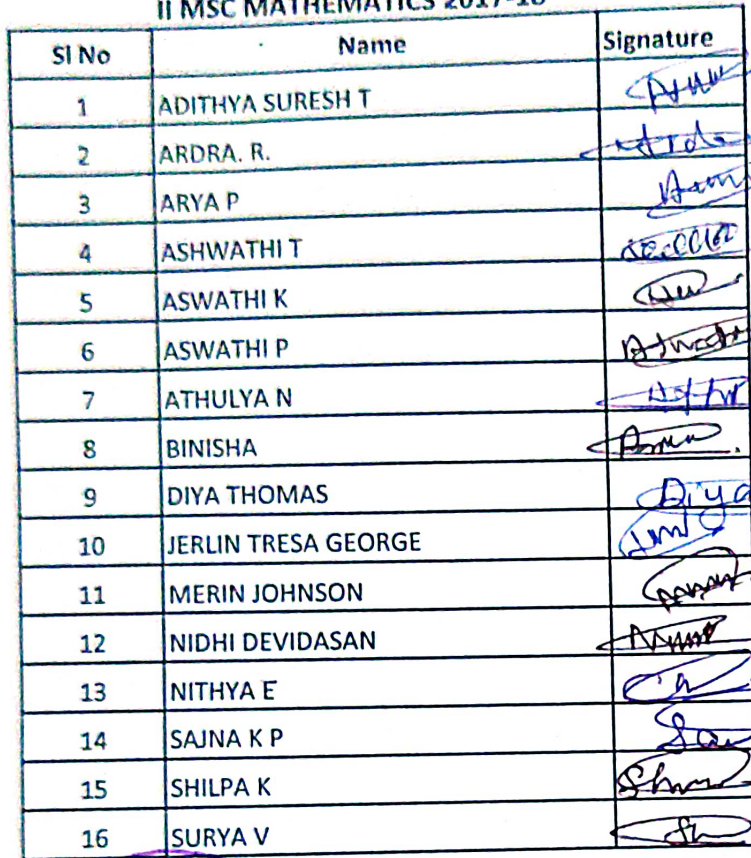 II MSC MATHEMATICS 2017-18
Sl No Name Signature
1 ADITHYA SURESH T
2 ARDRA. R.
3 ARYA P
4 ASHWATHI T
5 ASWATHI K
6 ASWATHI P
7 ATHULYA N
8 BINISHA
9 DIYA THOMAS Diya
10 JERLIN TRESA GEORGE
11 MERIN JOHNSON
12 NIDHI DEVIDASAN
13 NITHYA E
14 SAJNA K P
15 SHILPA K
16 SURYA V